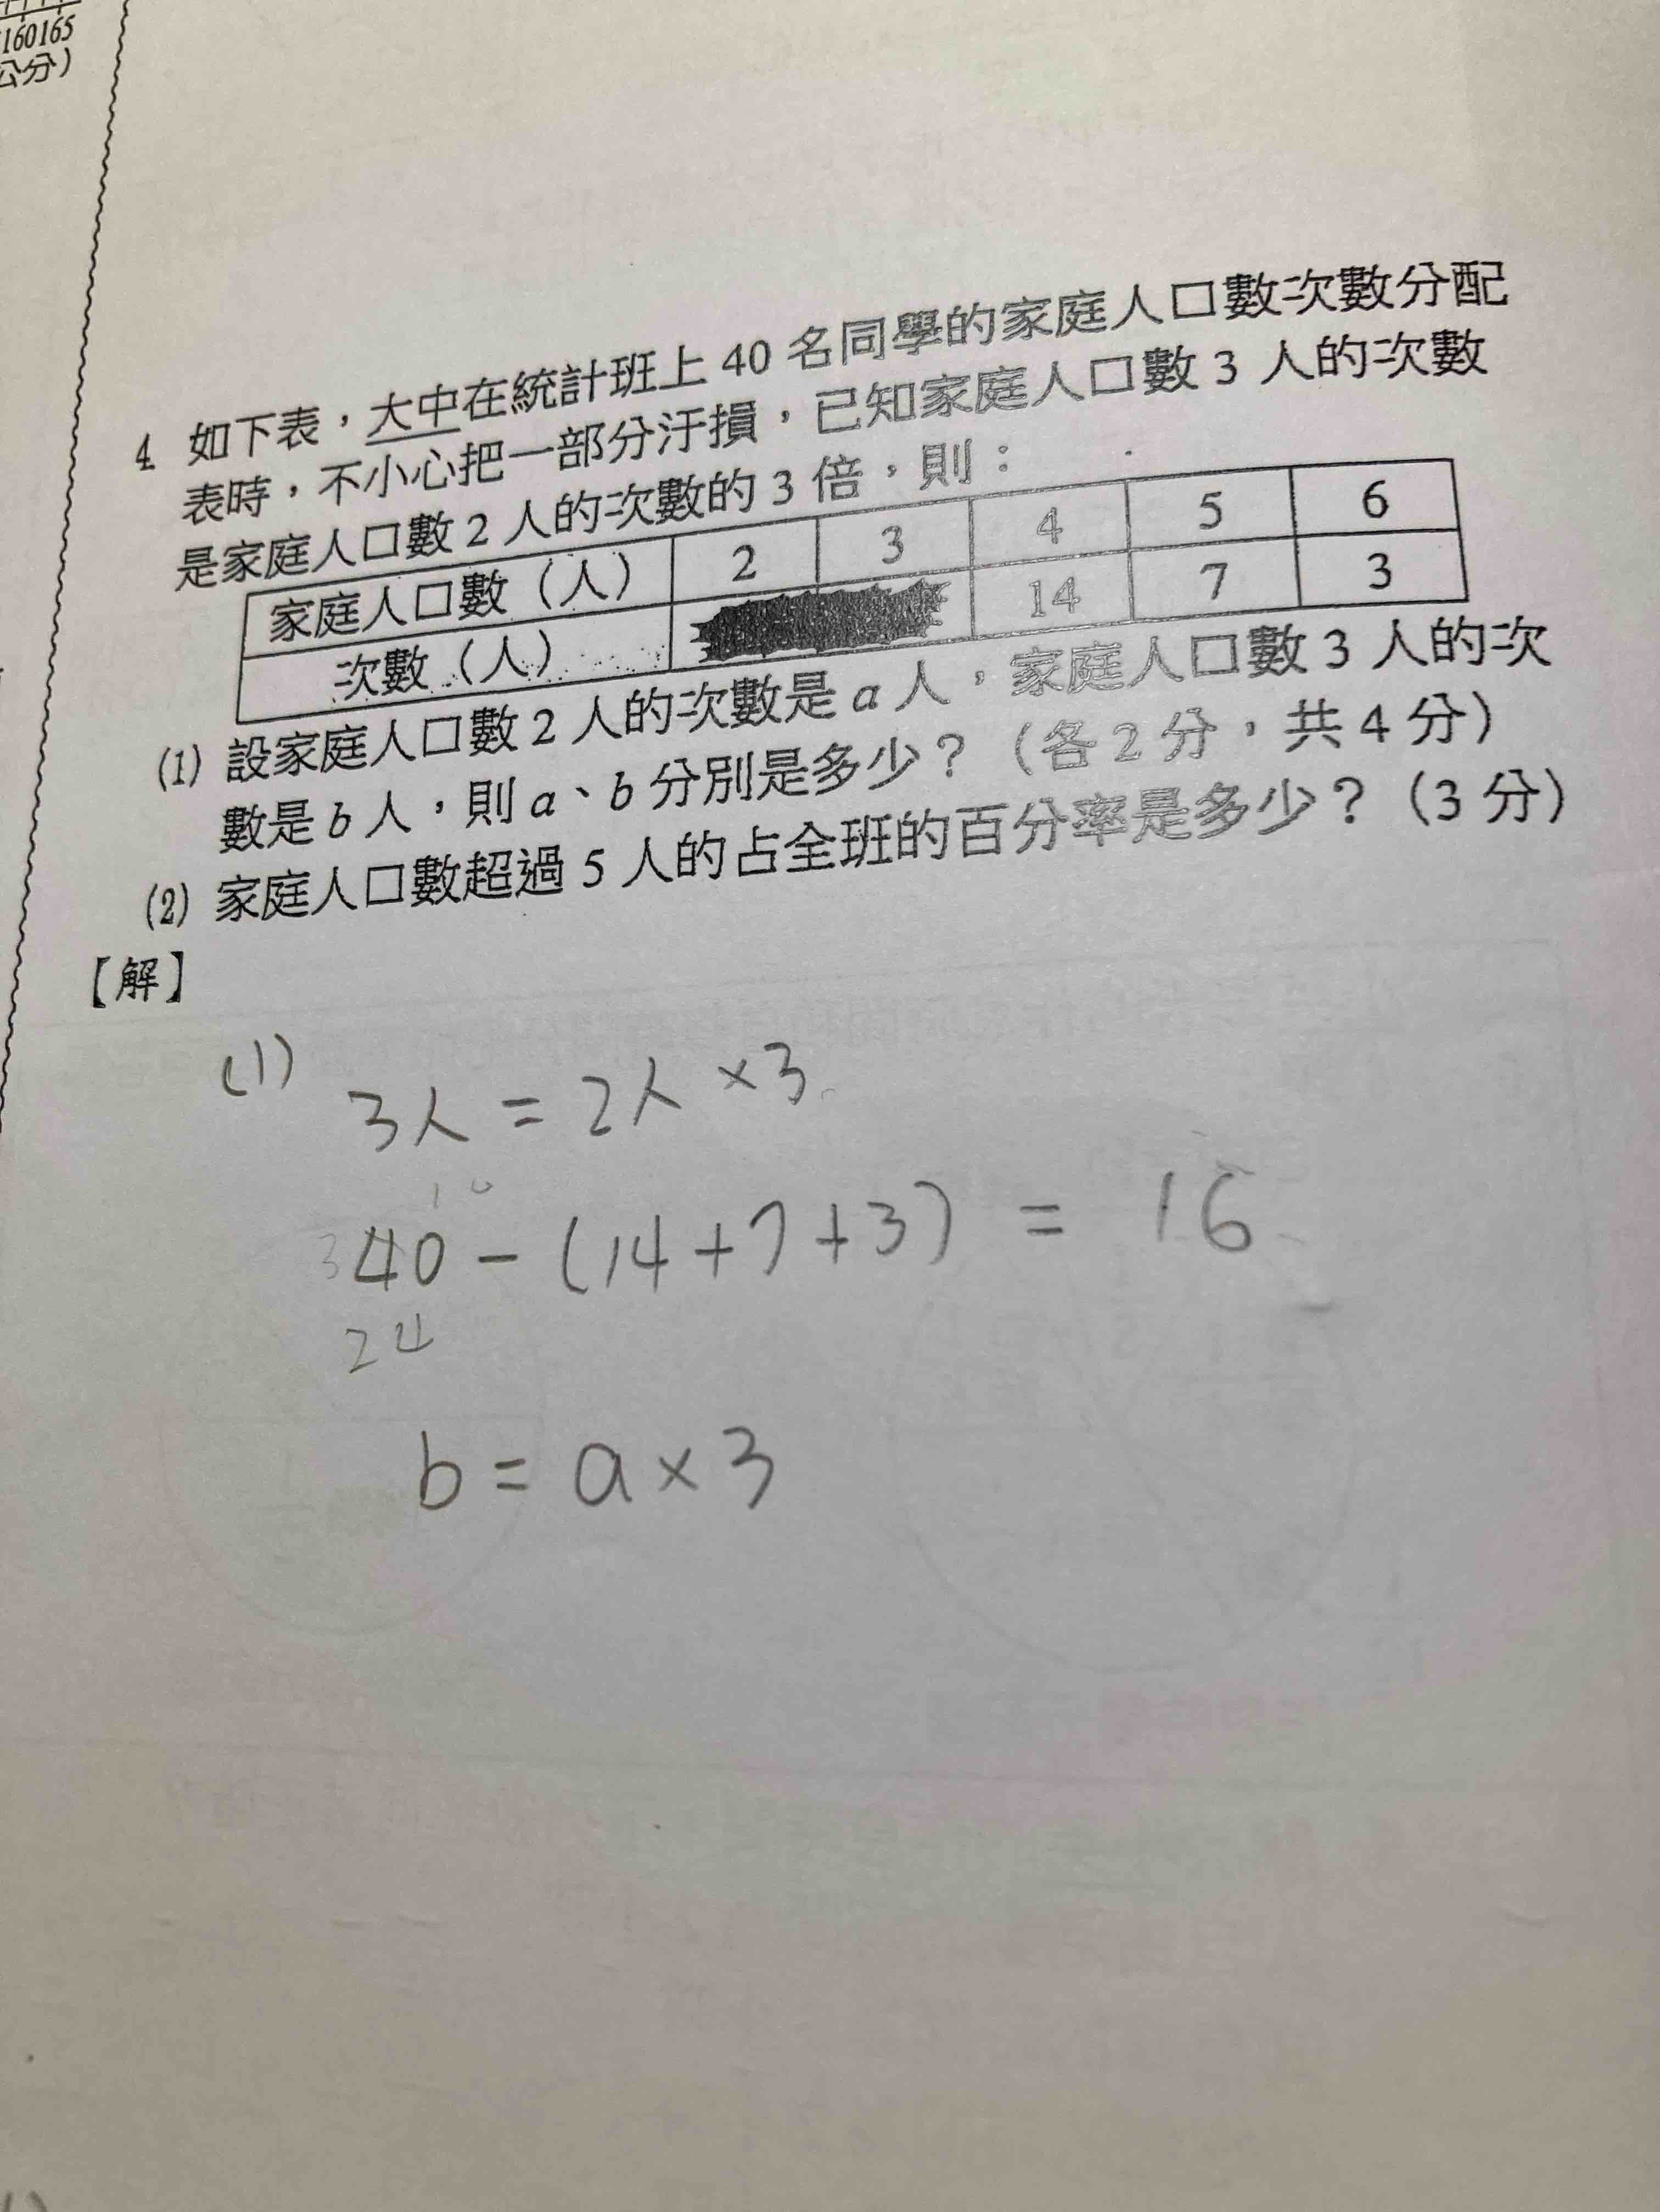 160165
公分）
4. 如下表，大中在統計班上 40 名同學的家庭人口數次數分配
表時，不小心把一部分汙損，已知家庭人口數 3 人的次數
是家庭人口數 2 人的次數的 3 倍，則：
家庭人口數（人） 2 3 4 5 6
次數（人） 14 7 3
(1) 設家庭人口數 2 人的次數是 a 人，家庭人口數 3 人的次
數是 b 人，則 a、b 分別是多少？（各 2 分，共 4 分）
(2) 家庭人口數超過 5 人的占全班的百分率是多少？（3 分）
【解】
(1) 3人 = 2人 ×3
10
3
40 - (14+7+3) = 16
24
b = a×3